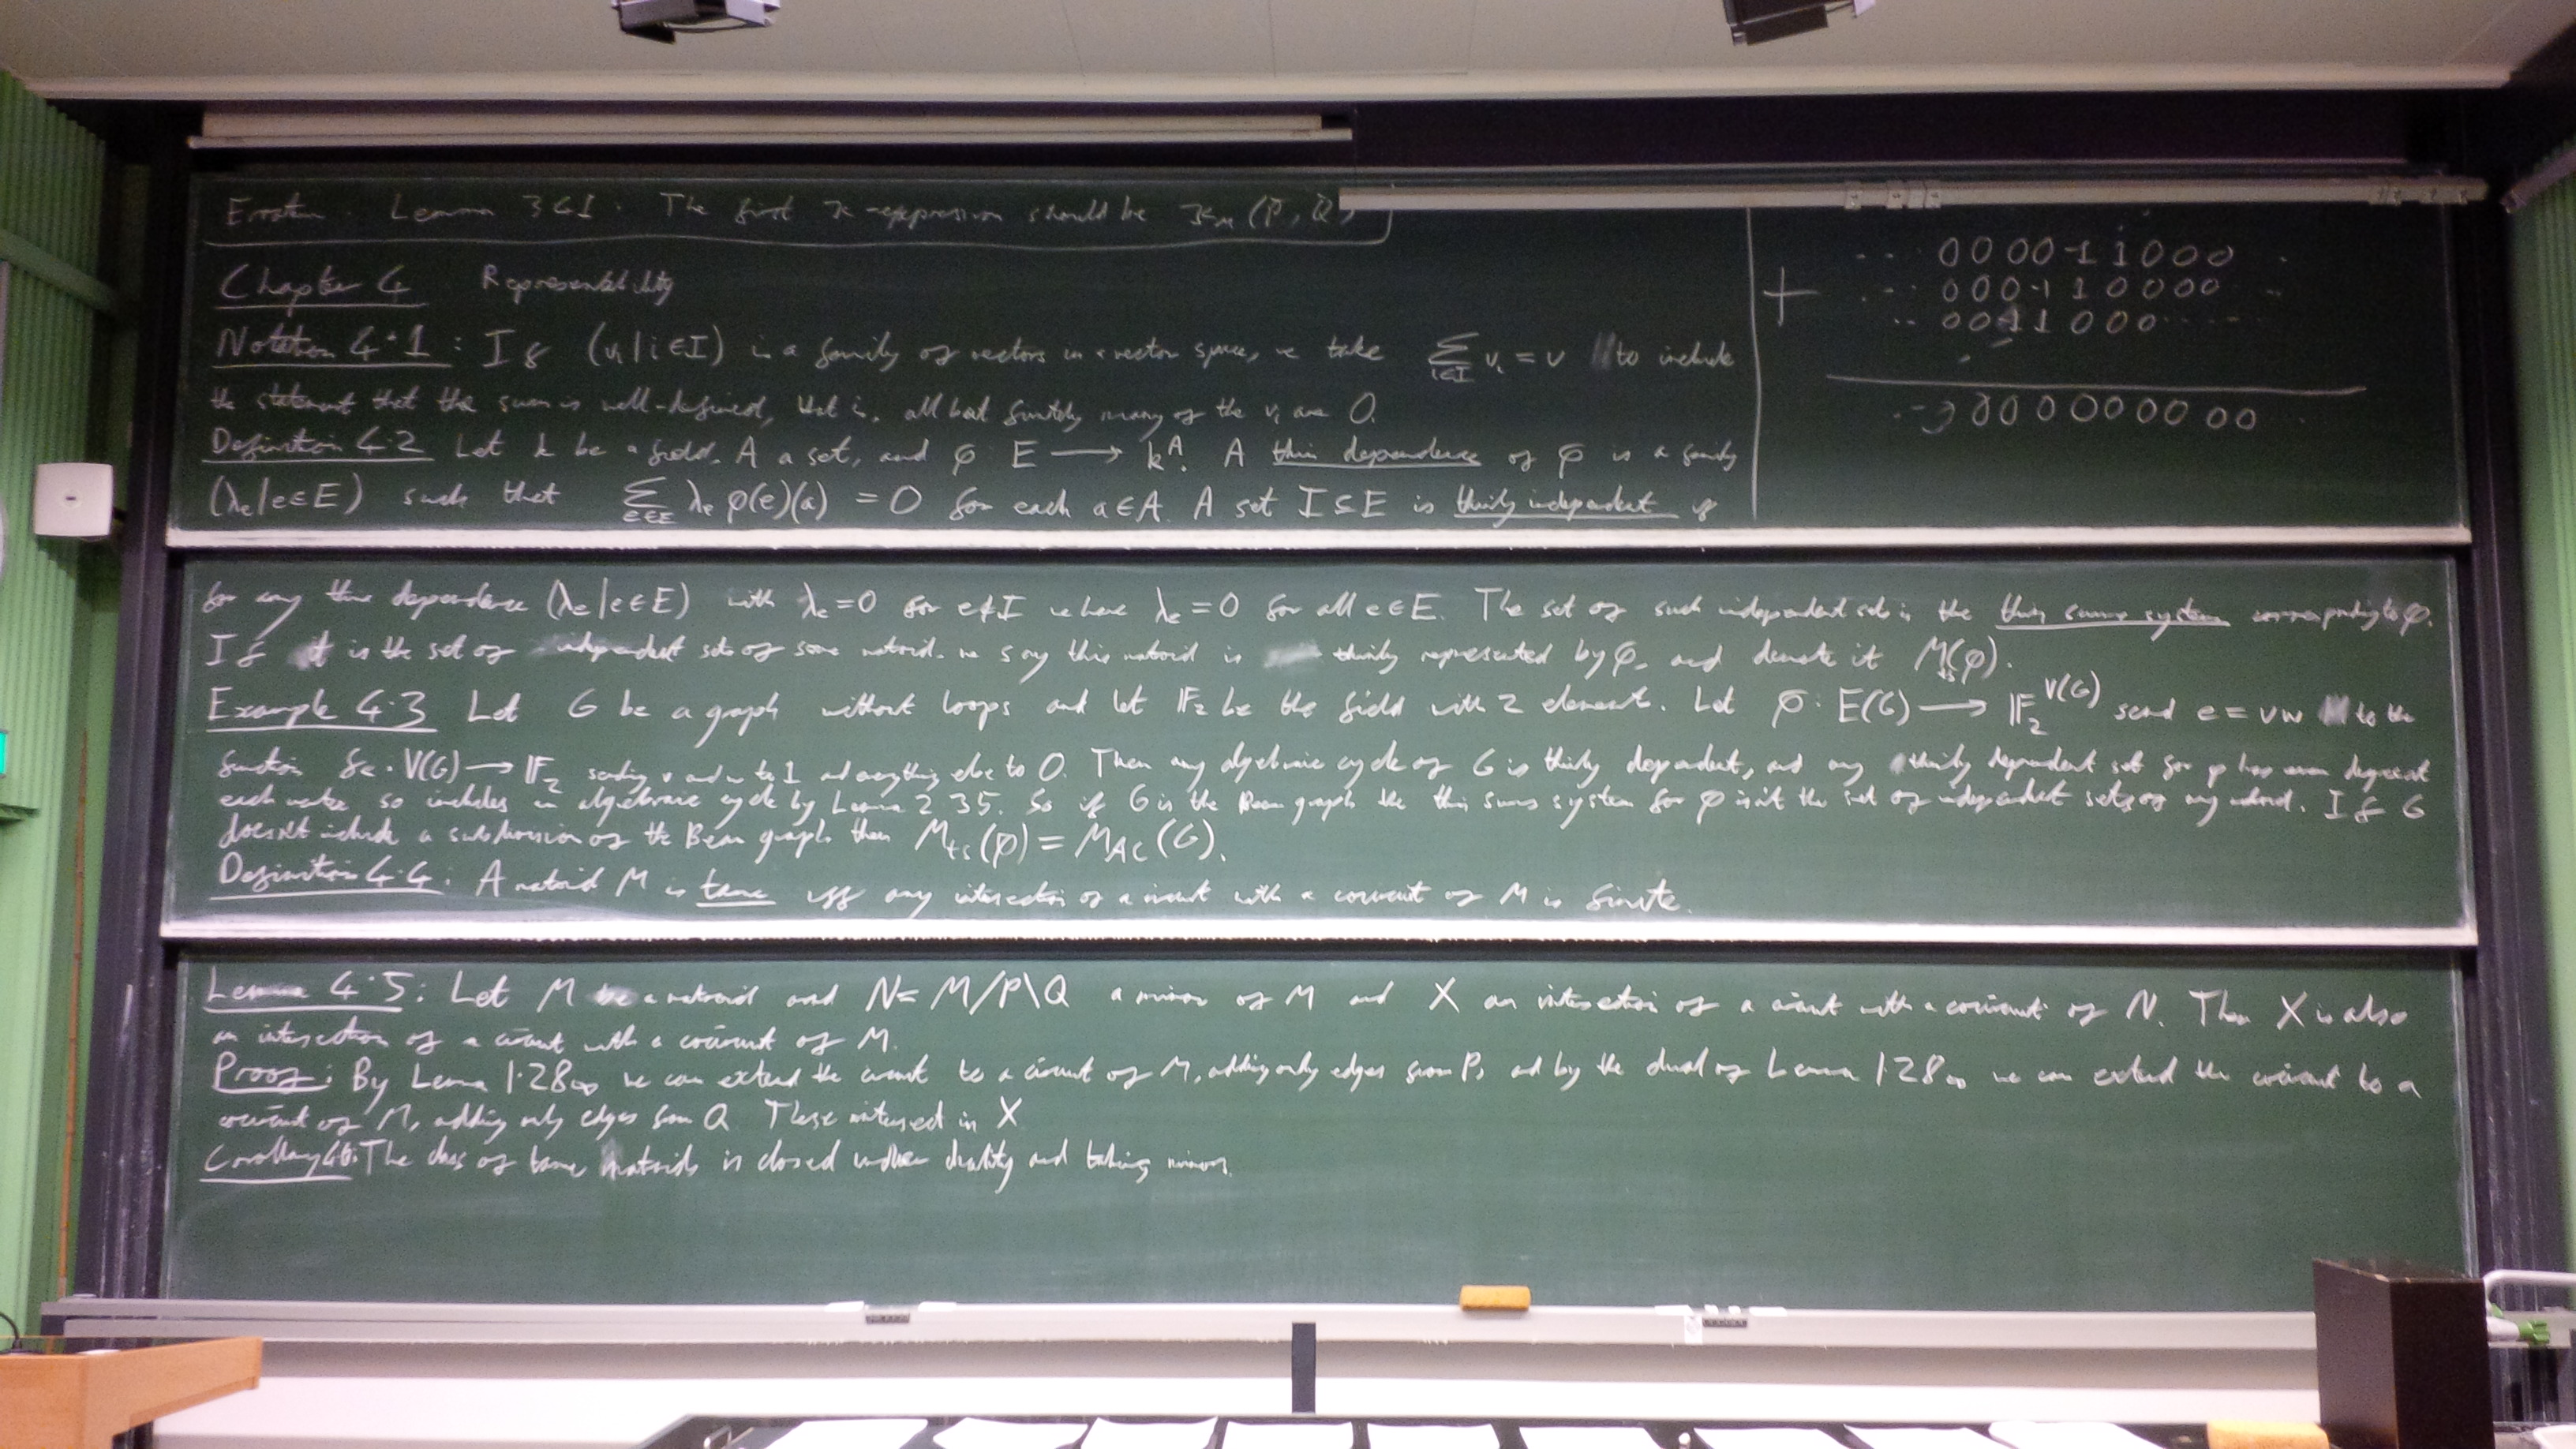 Erratum. Lemma 3.41: The first κ-expression should be κ_M(P, Q)
Chapter 4 Representability
Notation 4.1: If (v_i | i ∈ I) is a family of vectors in a vector space, we take ∑_{i∈I} v_i = v to include
the statement that the sum is well-defined, that is, all but finitely many of the v_i are 0.
Definition 4.2 Let k be a field, A a set, and φ: E → k^A. A thin dependence of φ is a family
(λ_e | e ∈ E) such that ∑_{e∈E} λ_e φ(e)(a) = 0 for each a ∈ A. A set I ⊆ E is thinly independent if
. . . 0 0 0 0 -1 1 0 0 0 .
+ . . . 0 0 0 -1 1 0 0 0 0 . .
. . 0 0 -1 1 0 0 0 . . . . .
. . 0 0 0 0 0 0 0 0 0 .
for any thin dependence (λ_e | e ∈ E) with λ_e = 0 for e ∉ I we have λ_e = 0 for all e ∈ E. The set of such independent sets is the thin sums system corresponding to φ.
If it is the set of independent sets of some matroid, we say this matroid is thinly represented by φ, and denote it M_ts(φ).
Example 4.3 Let G be a graph without loops and let 𝔽_2 be the field with 2 elements. Let φ: E(G) → 𝔽_2^{V(G)} send e = vw to the
function f_e: V(G) → 𝔽_2 sending v and w to 1 and everything else to 0. Then any algebraic cycle of G is thinly dependent, and any thinly dependent set for φ has even degree at
each vertex, so includes an algebraic cycle by Lemma 2.35. So if G is the Bean graph the thin sums system for φ isn't the set of independent sets of any matroid. If G
doesn't include a subdivision of the Bean graph then M_ts(φ) = M_AC(G).
Definition 4.4: A matroid M is tame iff any intersection of a circuit with a cocircuit of M is finite.
Lemma 4.5: Let M be a matroid and N = M/P\Q a minor of M and X an intersection of a circuit with a cocircuit of N. Then X is also
an intersection of a circuit with a cocircuit of M.
Proof: By Lemma 1.28∞ we can extend the circuit to a circuit of M, adding only edges from P, and by the dual of Lemma 1.28∞ we can extend the cocircuit to a
cocircuit of M, adding only edges from Q. These intersect in X
Corollary 4.6: The class of tame matroids is closed under duality and taking minors.